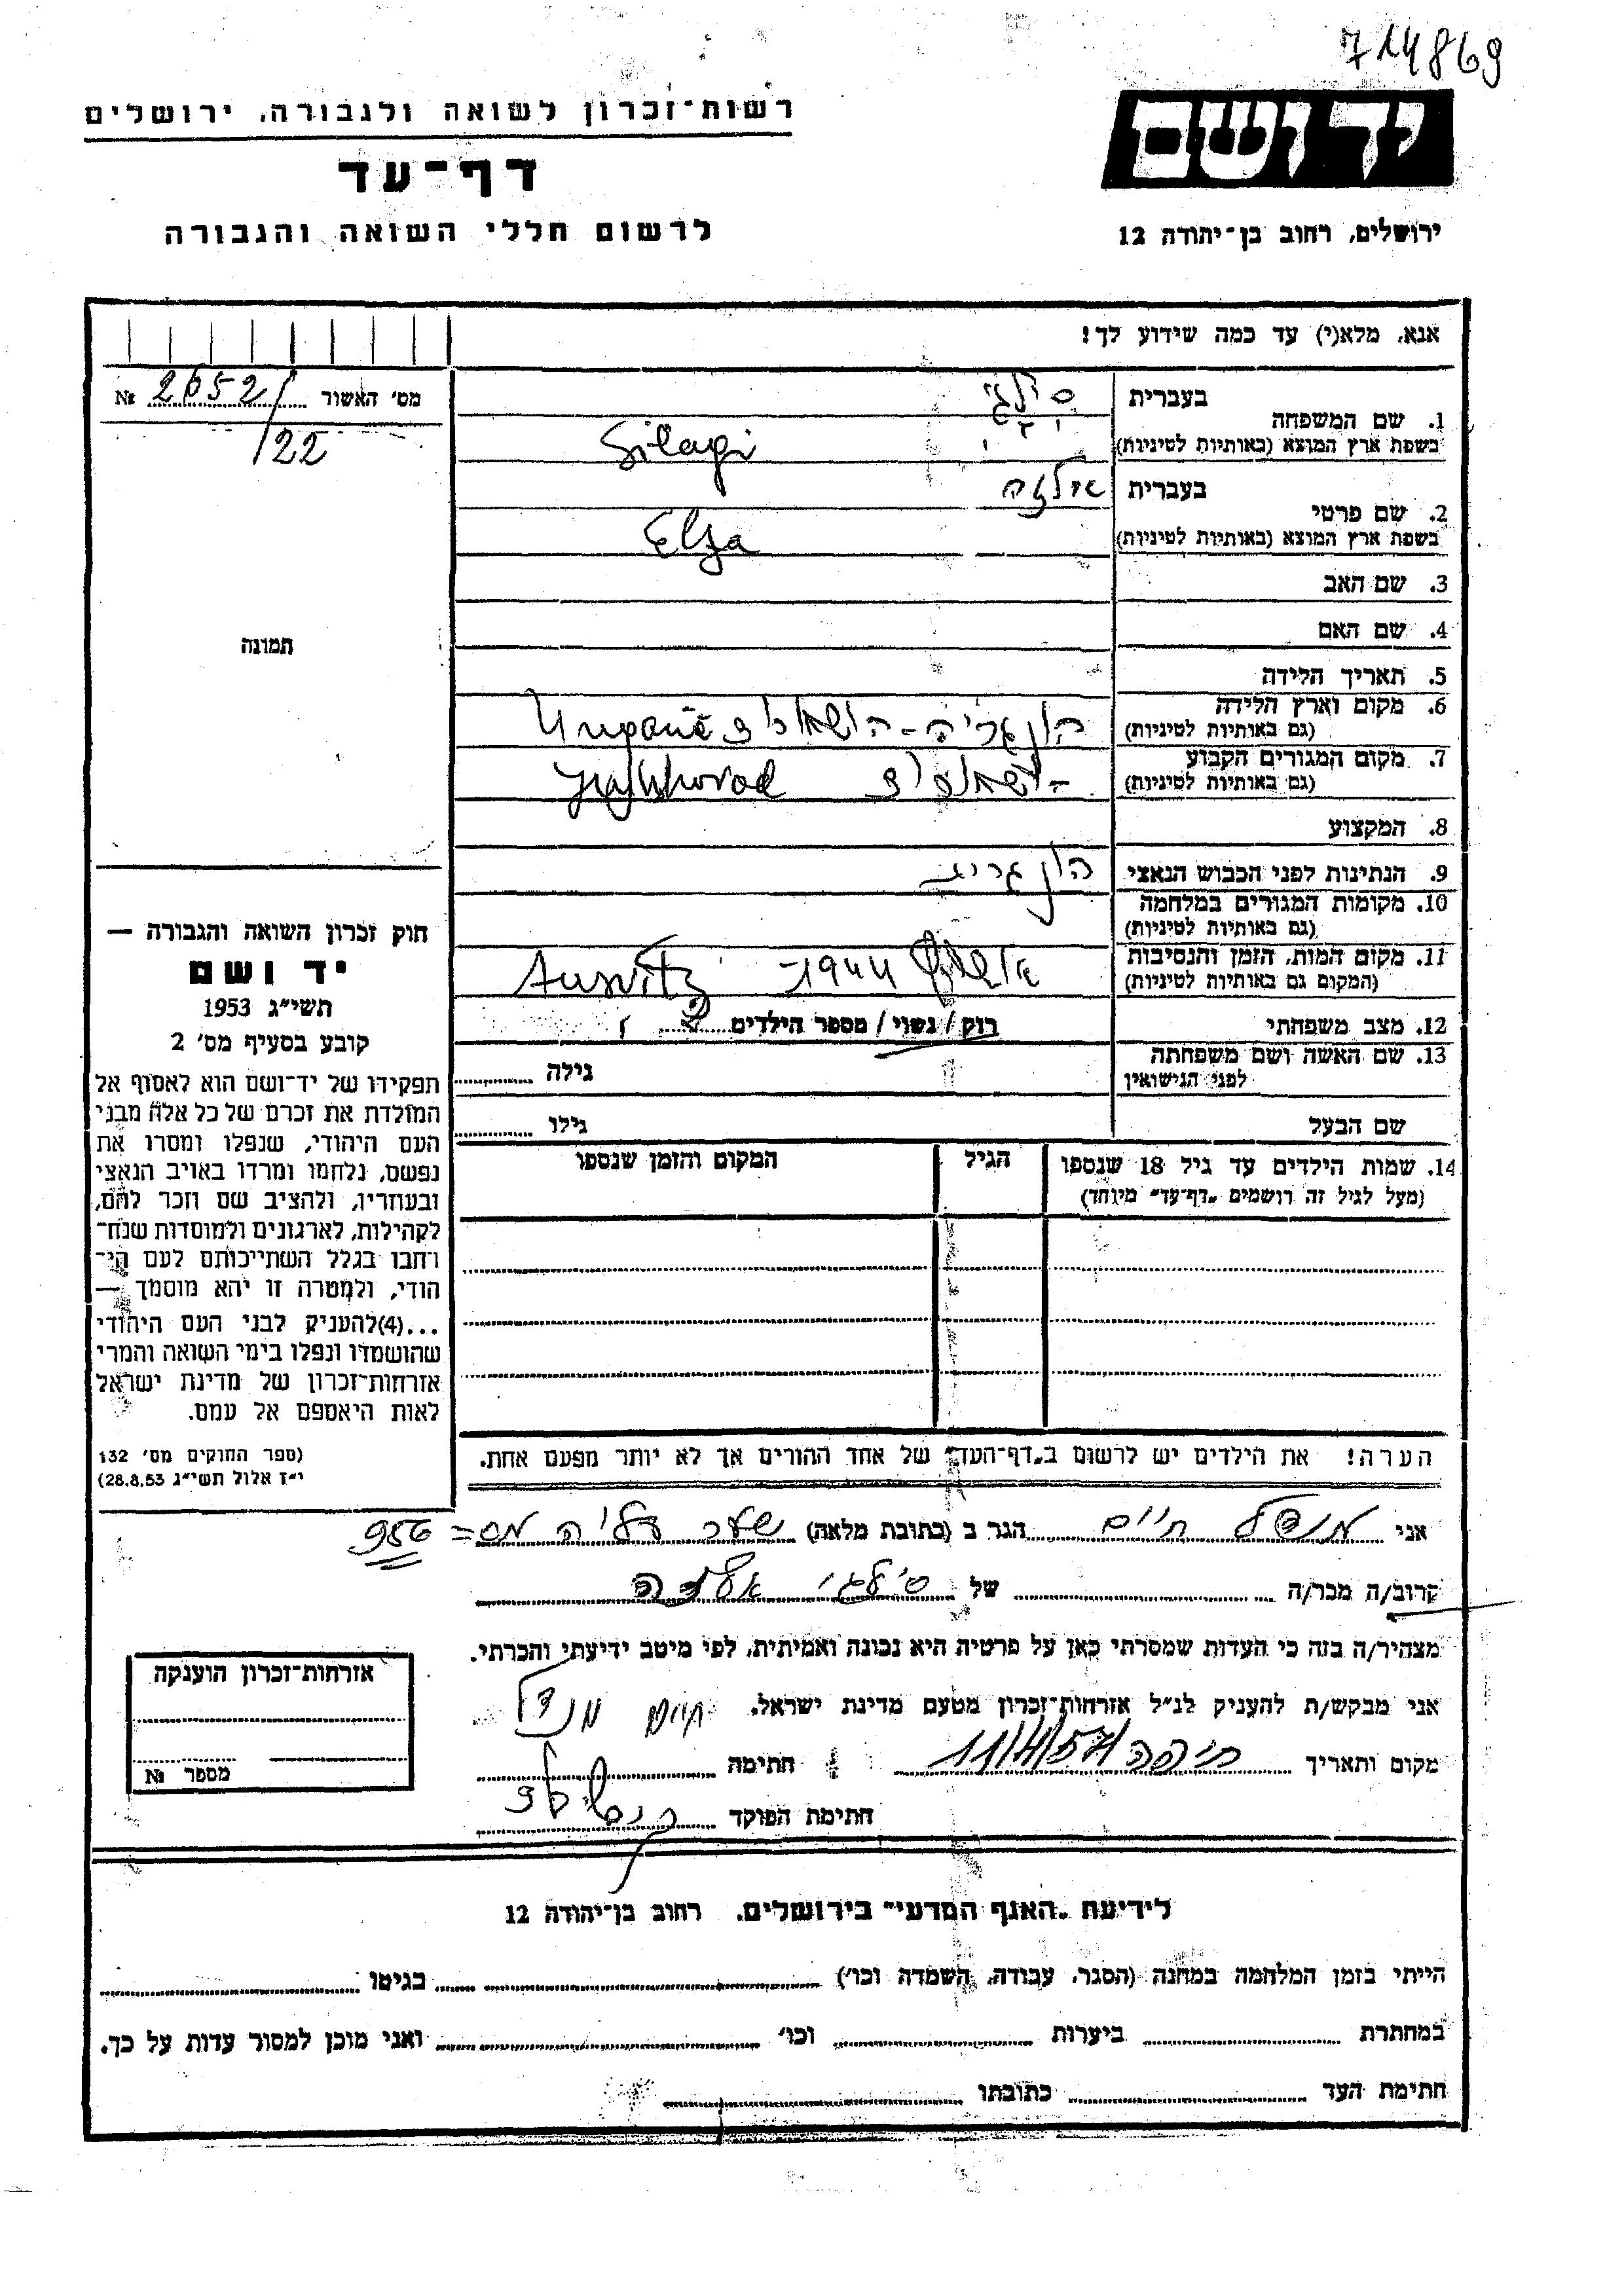 714869
רשות־זכרון לשואה ולגבורה, ירושלים
יד ושם
דף־עד
לרשום חללי השואה והגבורה
ירושלים, רחוב בן־יהודה 12
אנא, מלא(י) עד כמה שידוע לך!
מס׳ האשור № 26521
/22
תמונה
בעברית סילגי
1. שם המשפחה
בשפת ארץ המוצא (באותיות לטיניות) Silagi
בעברית אילזה
2. שם פרטי
בשפת ארץ המוצא (באותיות לטיניות) Elza
3. שם האב
4. שם האם
5. תאריך הלידה
6. מקום וארץ הלידה הונגריה -
(גם באותיות לטיניות)
7. מקום המגורים הקבוע
(גם באותיות לטיניות)
8. המקצוע
9. הנתינות לפני הכבוש הנאצי הונגרית
10. מקומות המגורים במלחמה
(גם באותיות לטיניות)
11. מקום המות, הזמן והנסיבות 1944 Auswitz
(המקום גם באותיות לטיניות)
12. מצב משפחתי רוק / נשוי / מספר הילדים 2
13. שם האשה ושם משפחתה גילה
לפני הנישואין
שם הבעל גילו
14. שמות הילדים עד גיל 18 שנספו הגיל המקום והזמן שנספו
(מעל לגיל זה רושמים „דף־עד״ מיוחד)
הערה! את הילדים יש לרשום ב„דף־העד״ של אחד ההורים אך לא יותר מפעם אחת.
חוק זכרון השואה והגבורה —
יד ושם
תשי״ג 1953
קובע בסעיף מס׳ 2
תפקידו של יד־ושם הוא לאסוף אל
המולדת את זכרם של כל אלה מבני
העם היהודי, שנפלו ומסרו את
נפשם, נלחמו ומרדו באויב הנאצי
ובעוזריו, ולהציב שם וזכר להם,
לקהילות, לארגונים ולמוסדות שנח־
רחבו בגלל השתייכותם לעם הי־
הודי, ולמטרה זו יהא מוסמך —
...(4)להעניק לבני העם היהודי
שהושמדו ונפלו בימי השואה והמרי
אזרחות־זכרון של מדינת ישראל
לאות היאספם אל עמם.
(ספר החוקים מס׳ 132
י״ז אלול תשי״ג 28.8.53)
אני מנדל חיים הגר ב (כתובת מלאה) שער עליה מס= 956
קרוב/ה מכר/ה של סילגי אלזה
מצהיר/ה בזה כי העדות שמסרתי כאן על פרטיה היא נכונה ואמיתית, לפי מיטב ידיעתי והכרתי.
אני מבקש/ת להעניק לנ״ל אזרחות־זכרון מטעם מדינת ישראל.
מקום ותאריך חיפה 11/4/57 חתימה חיים מנדל
חתימת הפוקד
אזרחות־זכרון הוענקה
מספר №
לידיעת „האגף המדעי״ בירושלים, רחוב בן־יהודה 12
הייתי בזמן המלחמה במחנה (הסגר, עבודה, השמדה וכו׳) בגיטו
במחתרת ביערות וכו׳ ואני מוכן למסור עדות על כך.
חתימת העד כתובתו